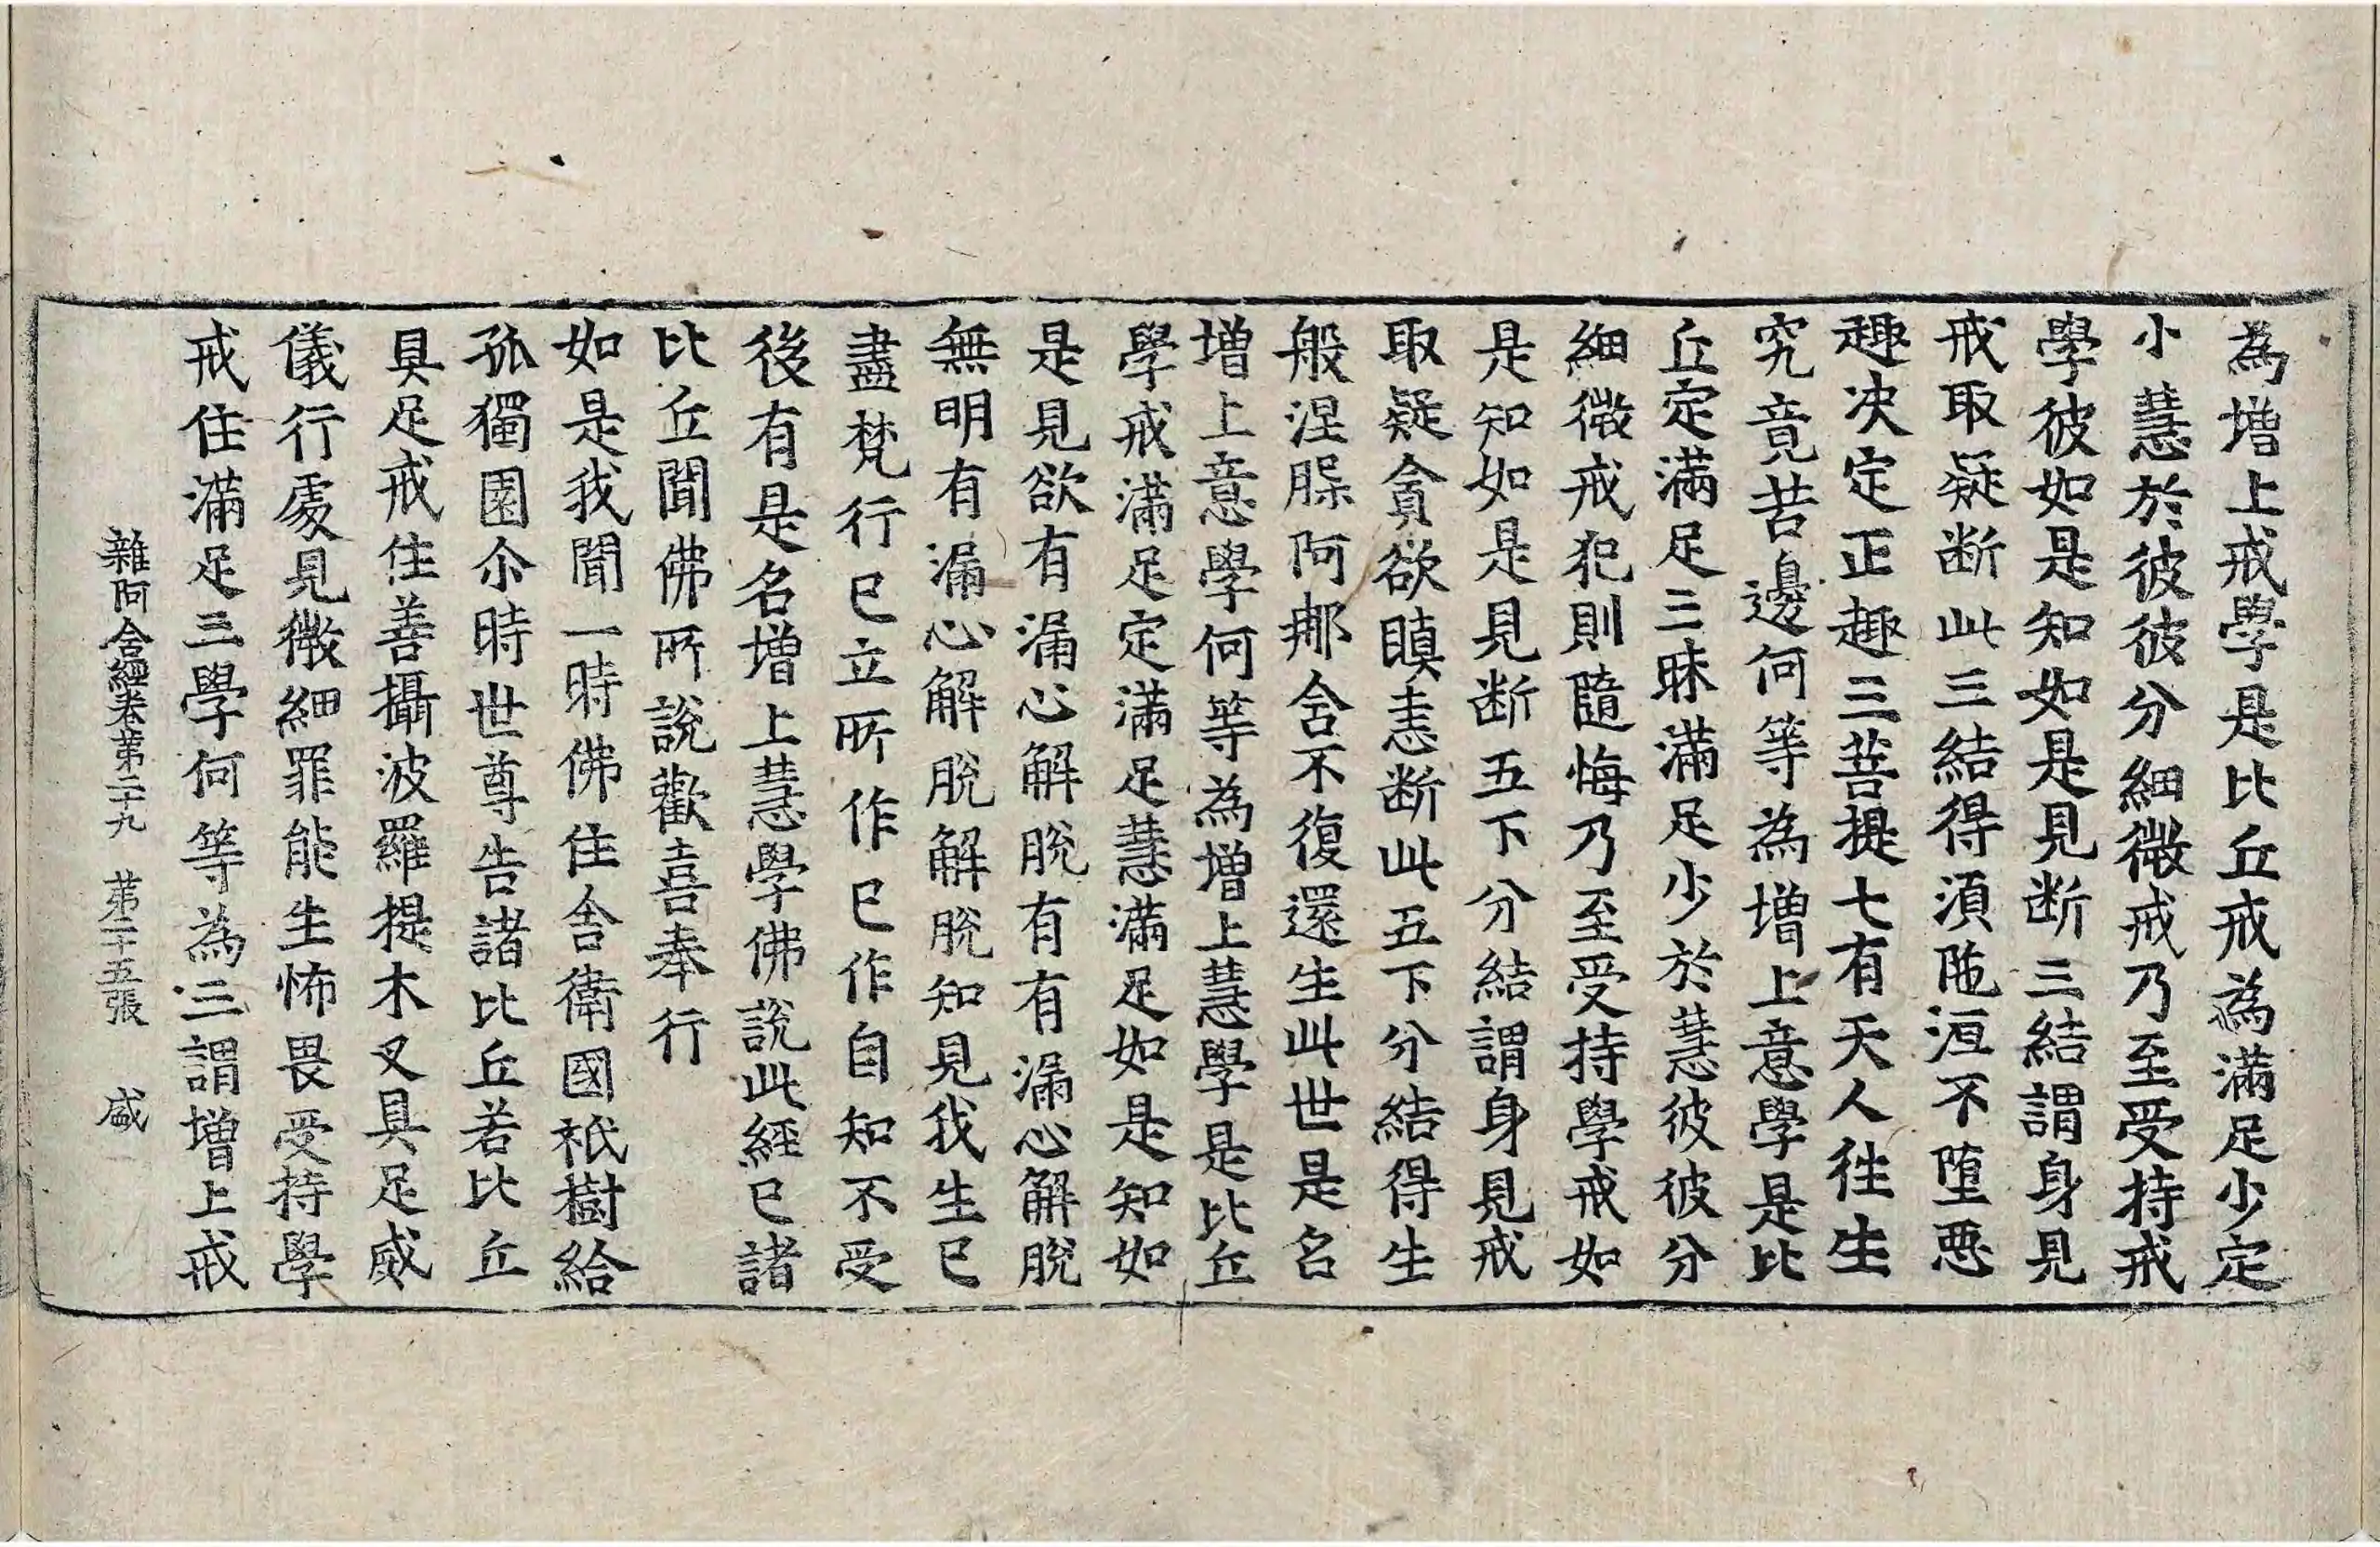 為增上戒學是比丘戒為滿足少定
小慧於彼彼分細微戒乃至受持戒
學彼如是知如是見断三結謂身見
戒取疑断此三結得須陁洹不墮惡
趣決定正趣三菩提七有天人往生
究竟苦邊何等為增上意學是比
丘定滿足三昧滿足少於慧彼彼分
細微戒犯則隨悔乃至受持學戒如
是知如是見断五下分結謂身見戒
取疑貪欲瞋恚断此五下分結得生
般涅槃阿那含不復還生此世是名
增上意學何等為增上慧學是比丘
學戒滿足定滿足慧滿足如是知如
是見欲有漏心解脫有有漏心解脫
無明有漏心解脫解脫知見我生已
盡梵行已立所作已作自知不受
後有是名增上慧學佛說此經已諸
比丘聞佛所說歡喜奉行
如是我聞一時佛住舍衛國祇樹給
孤獨園尒時世尊告諸比丘若比丘
具足戒住善攝波羅提木叉具足威
儀行處見微細罪能生怖畏受持學
戒住滿足三學何等為三謂增上戒
雜阿含經卷第二十九 第二十五張 盛